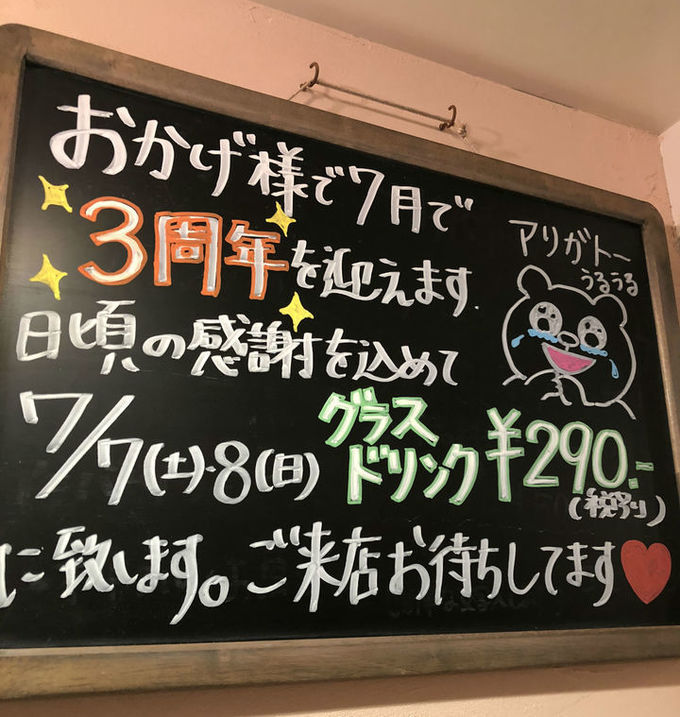 おかげ様で7月で
3周年を迎えます.
アリガトー
うるうる
日頃の感謝を込めて
7/7(土)·8(日)
グラス
ドリンク ¥290.-
(税別)
に致します。ご来店お待ちしてます